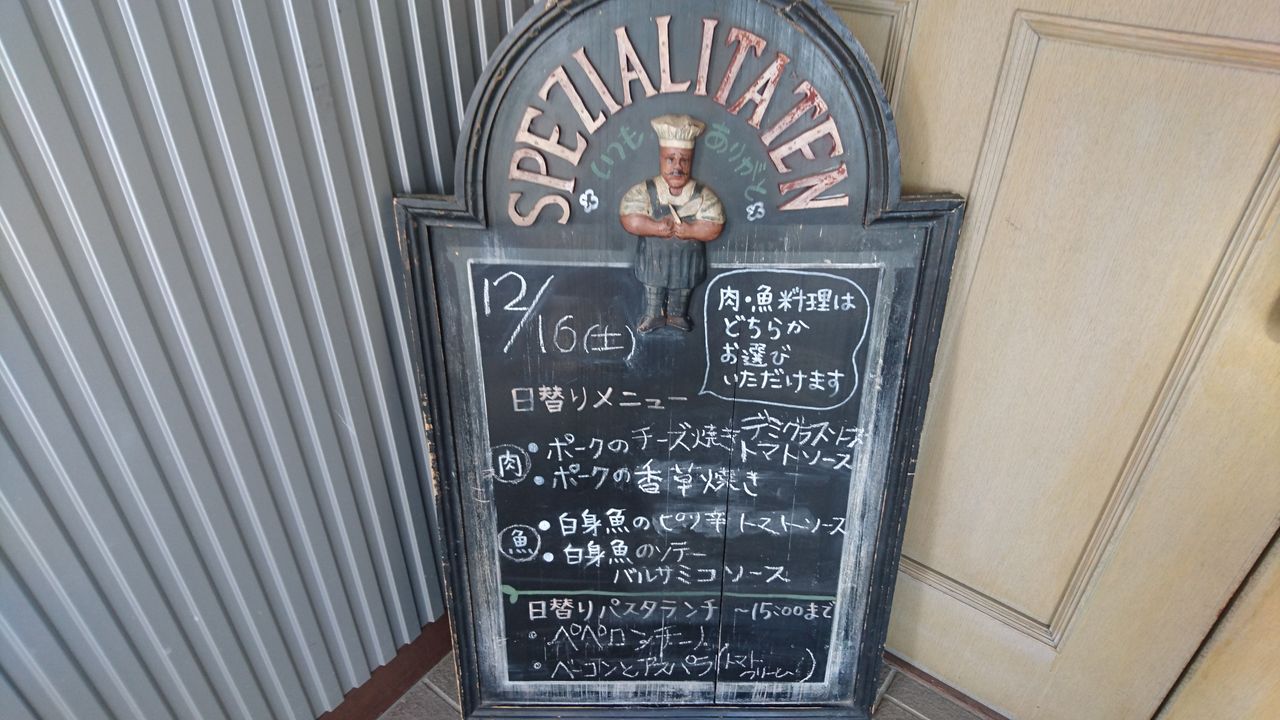 SPEZIALITATEN
いつも ありがと
12/16(土)
肉・魚料理は
どちらか
お選び
いただけます
日替りメニュー
肉 ・ポークのチーズ焼き デミグラスソース
トマトソース
・ポークの香草焼き
魚 ・白身魚のピリ辛トマトソース
・白身魚のソテー
バルサミコソース
日替りパスタランチ 〜15:00まで
・ペペロンチーノ
・ベーコンとアスパラ(トマト
クリーム)